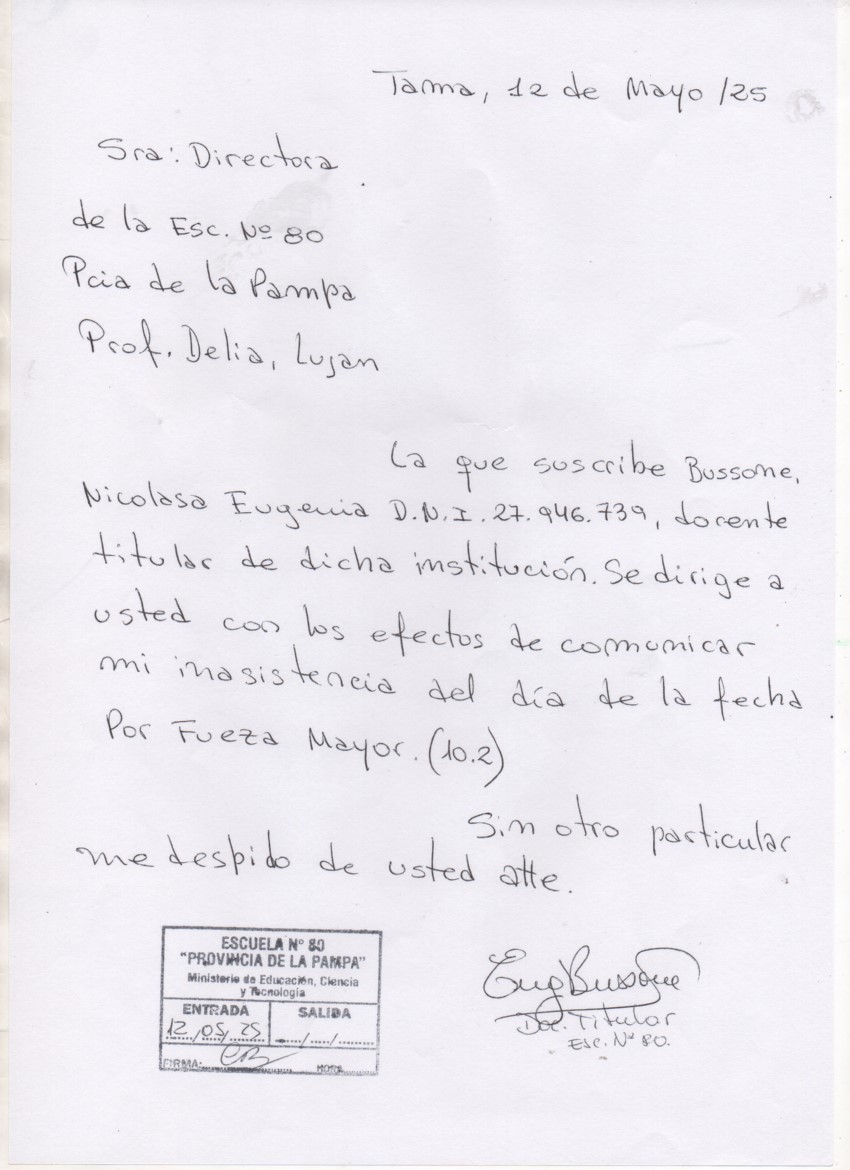 Tama, 12 de Mayo /25
Sra: Directora
de la Esc. Nº 80
Pcia de la Pampa
Prof. Delia, Lujan
La que suscribe Bussone,
Nicolasa Eugenia D.N.I. 27.946.739, docente
titular de dicha institución. Se dirige a
usted con los efectos de comunicar
mi inasistencia del día de la fecha
Por Fueza Mayor. (10.2)
Sin otro particular
me despido de usted atte.
ESCUELA N° 80
"PROVINCIA DE LA PAMPA"
Ministerio de Educación, Ciencia
y Tecnología
ENTRADA SALIDA
12/05/25 ..../..../....
FIRMA: HORA
Eug Bussone
Doc. Titular
Esc. Nº 80.